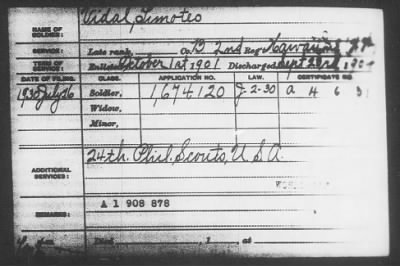 NAME OF SOLDIER: Vidal, Timoteo
SERVICE: Late rank, Co. B 2nd Reg't Hawaiian
TERM OF SERVICE: Enlisted October 1st 1901 Discharged Sept 23rd, 190
DATE OF FILING. CLASS. APPLICATION NO. LAW. CERTIFICATE NO.
1930 July 26 Soldier, 1,674,120 J 2-30 a 4 6 3
Widow,
Minor,
ADDITIONAL SERVICES: 24th. Phil. Scouts, U S A.
REMARKS: A 1 908 878
Died , 1 , at